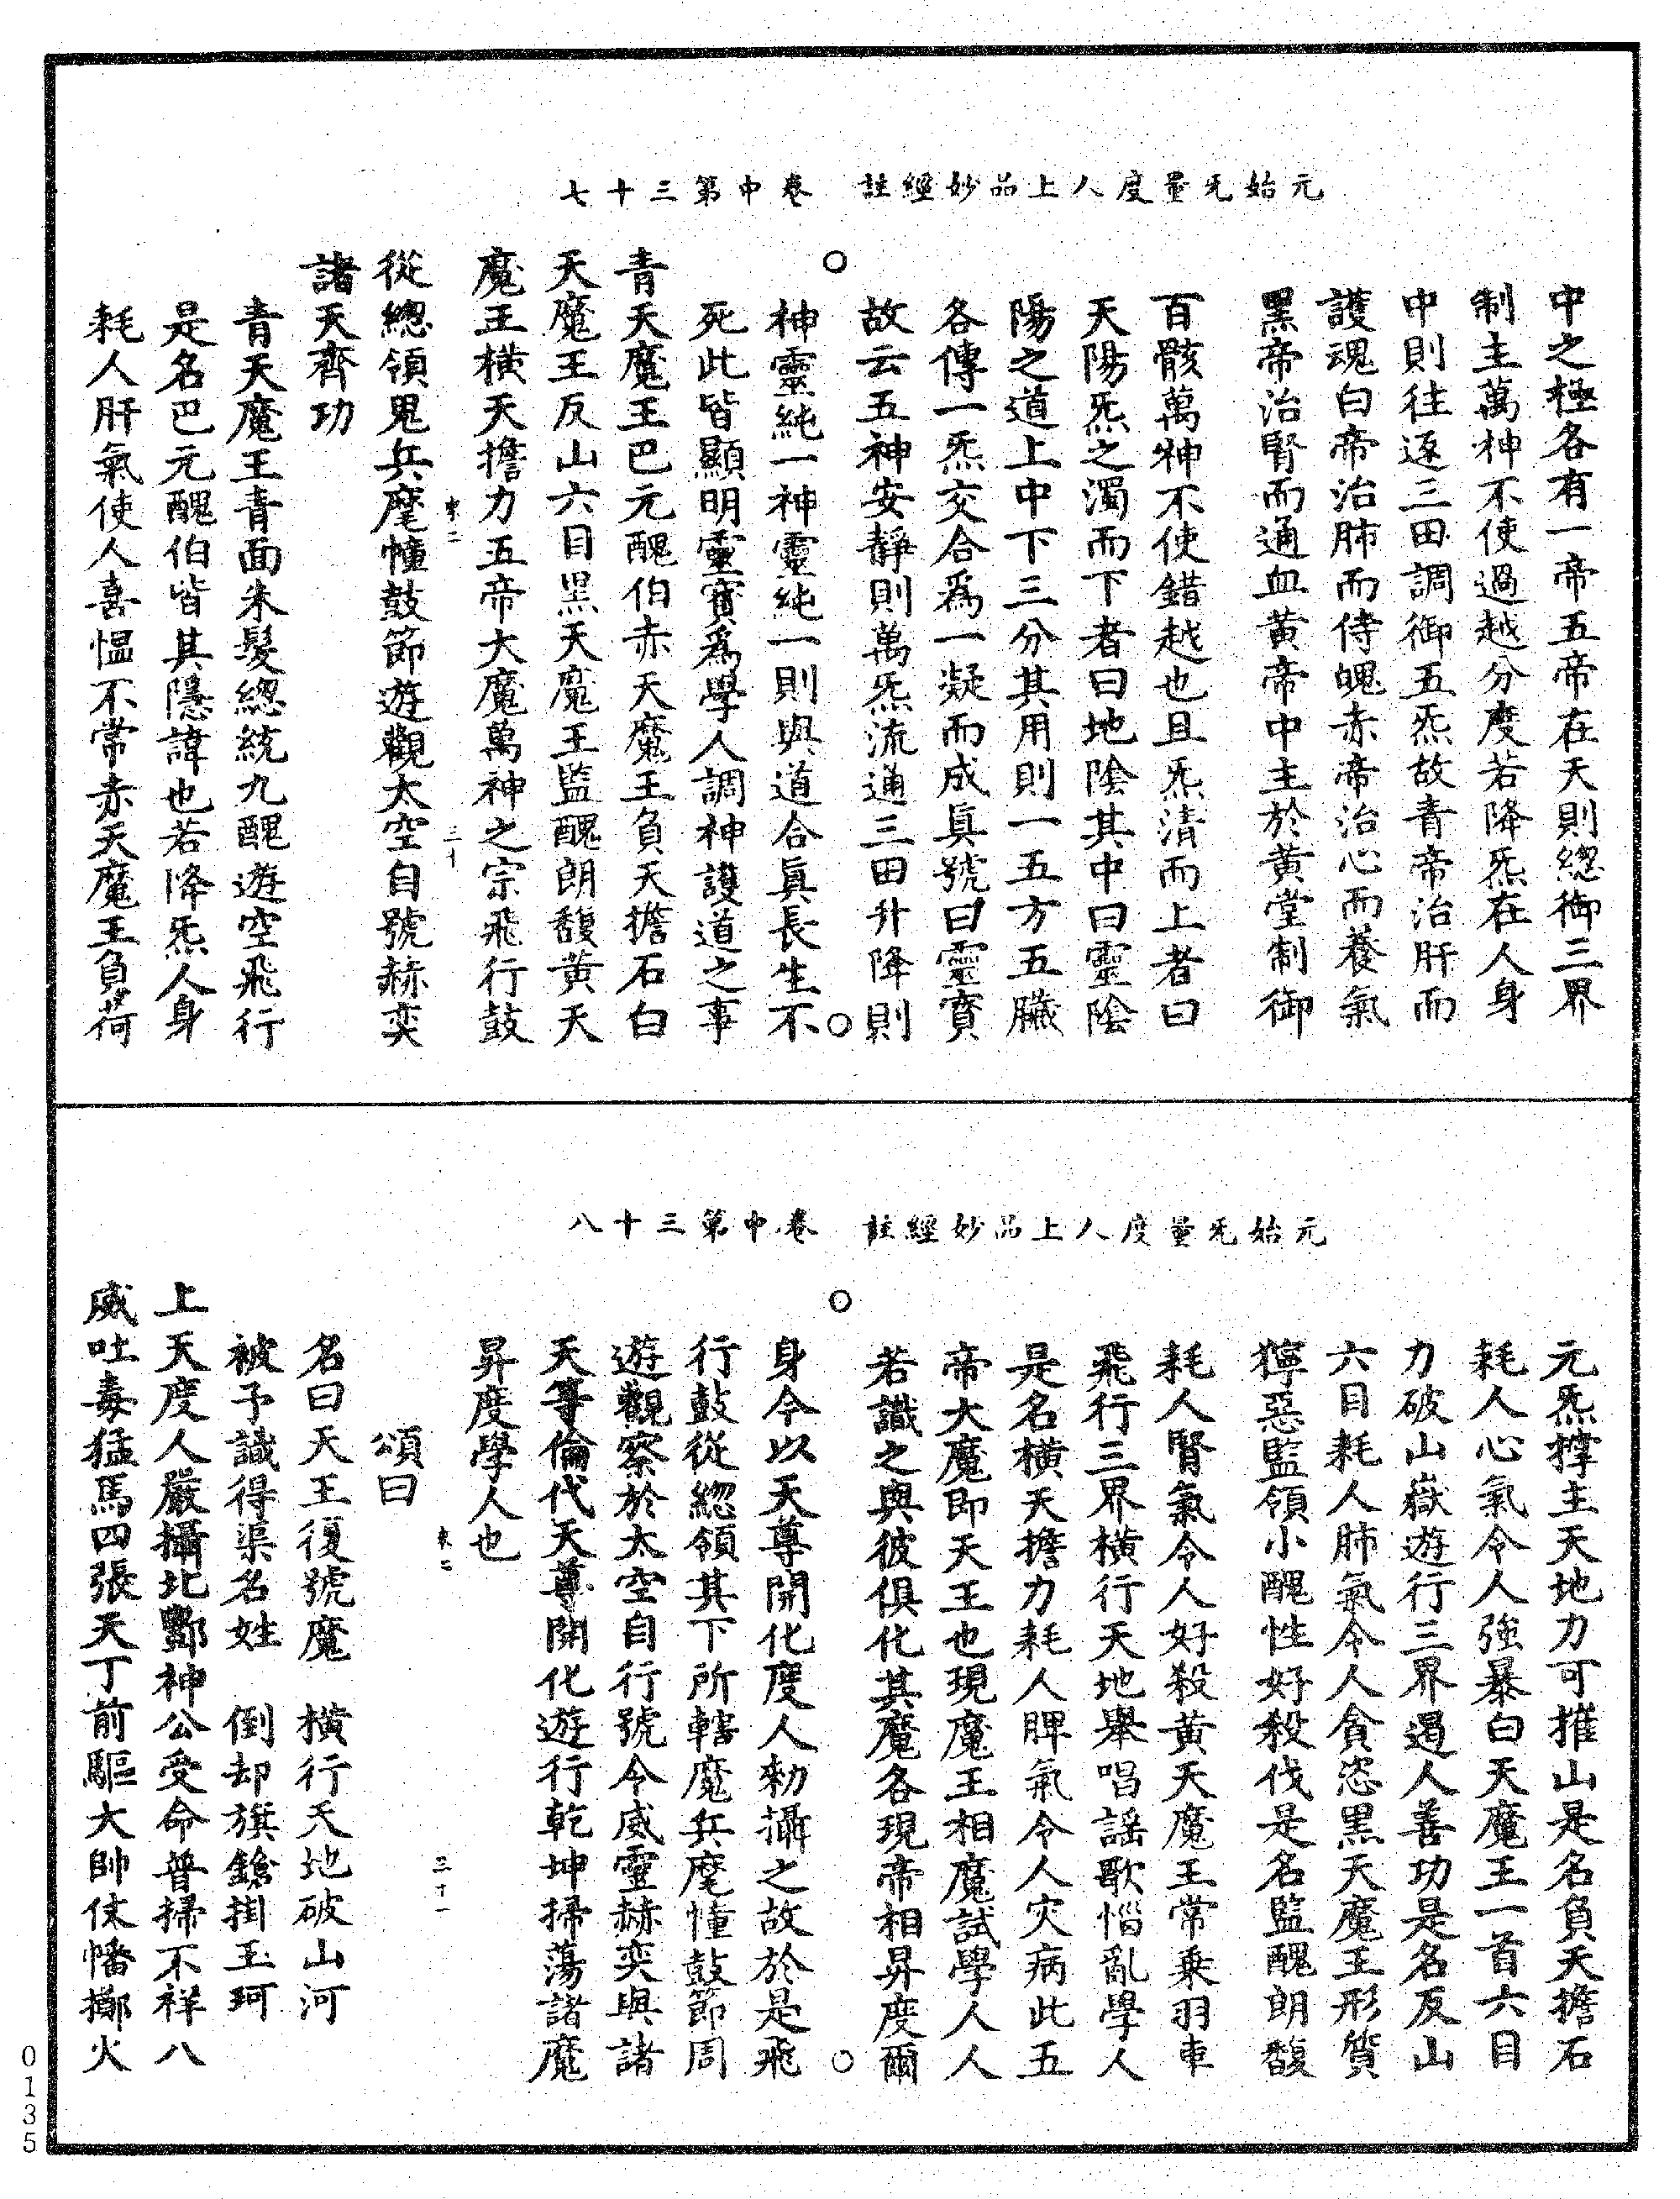 元始旡量度人上品妙經註　卷中第三十七
中之極各有一帝五帝在天則緫御三界
制主萬神不使過越分度若降炁在人身
中則往逐三田調御五炁故青帝治肝而
護魂白帝治肺而侍魄赤帝治心而養氣
黑帝治腎而通血黃帝中主於黃堂制御
百骸萬神不使錯越也且炁清而上者曰
天陽炁之濁而下者曰地陰其中曰靈陰
陽之道上中下三分其用則一五方五臟
各傳一炁交合爲一凝而成眞號曰靈寳
故云五神安靜則萬炁流通三田升降則
神靈純一神靈純一則與道合眞長生不
死此皆顯明靈寳爲學人調神護道之事
青天魔王巴元醜伯赤天魔王負天擔石白
天魔王反山六目黑天魔王監醜朗馥黃天
魔王橫天擔力五帝大魔萬神之宗飛行鼓
三十
從總領鬼兵麾幢鼓節遊觀太空自號赫奕
諸天齊功
青天魔王青面朱髮緫統九醜遊空飛行
是名巴元醜伯皆其隱諱也若降炁人身
耗人肝氣使人喜慍不常赤天魔王負荷
元始旡量度人上品妙經註　卷中第三十八
元炁撑主天地力可摧山是名負天擔石
耗人心氣令人強暴白天魔王一首六目
力破山嶽遊行三界遏人善功是名反山
六目耗人肺氣令人貪恣黑天魔王形質
獰惡監領小醜性好殺伐是名監醜朗馥
耗人腎氣令人好殺黃天魔王常乗羽車
飛行三界橫行天地舉唱謡歌惱亂學人
是名橫天擔力耗人脾氣令人灾病此五
帝大魔即天王也現魔王相魔試學人人
若識之與彼俱化其魔各現帝相昇度爾
身今以天尊開化度人勑攝之故於是飛
行鼓從緫領其下所轄魔兵麾幢鼓節周
遊觀察於太空自行號令威靈赫奕與諸
天等倫代天尊開化遊行乾坤掃蕩諸魔
昇度學人也
三十一
頌曰
名曰天王復號魔　橫行天地破山河
被予識得渠名姓　倒却旗鎗掛玉珂
上天度人嚴攝北酆神公受命普掃不祥八
威吐毒猛馬四張天丁前驅大帥仗幡擲火
0135